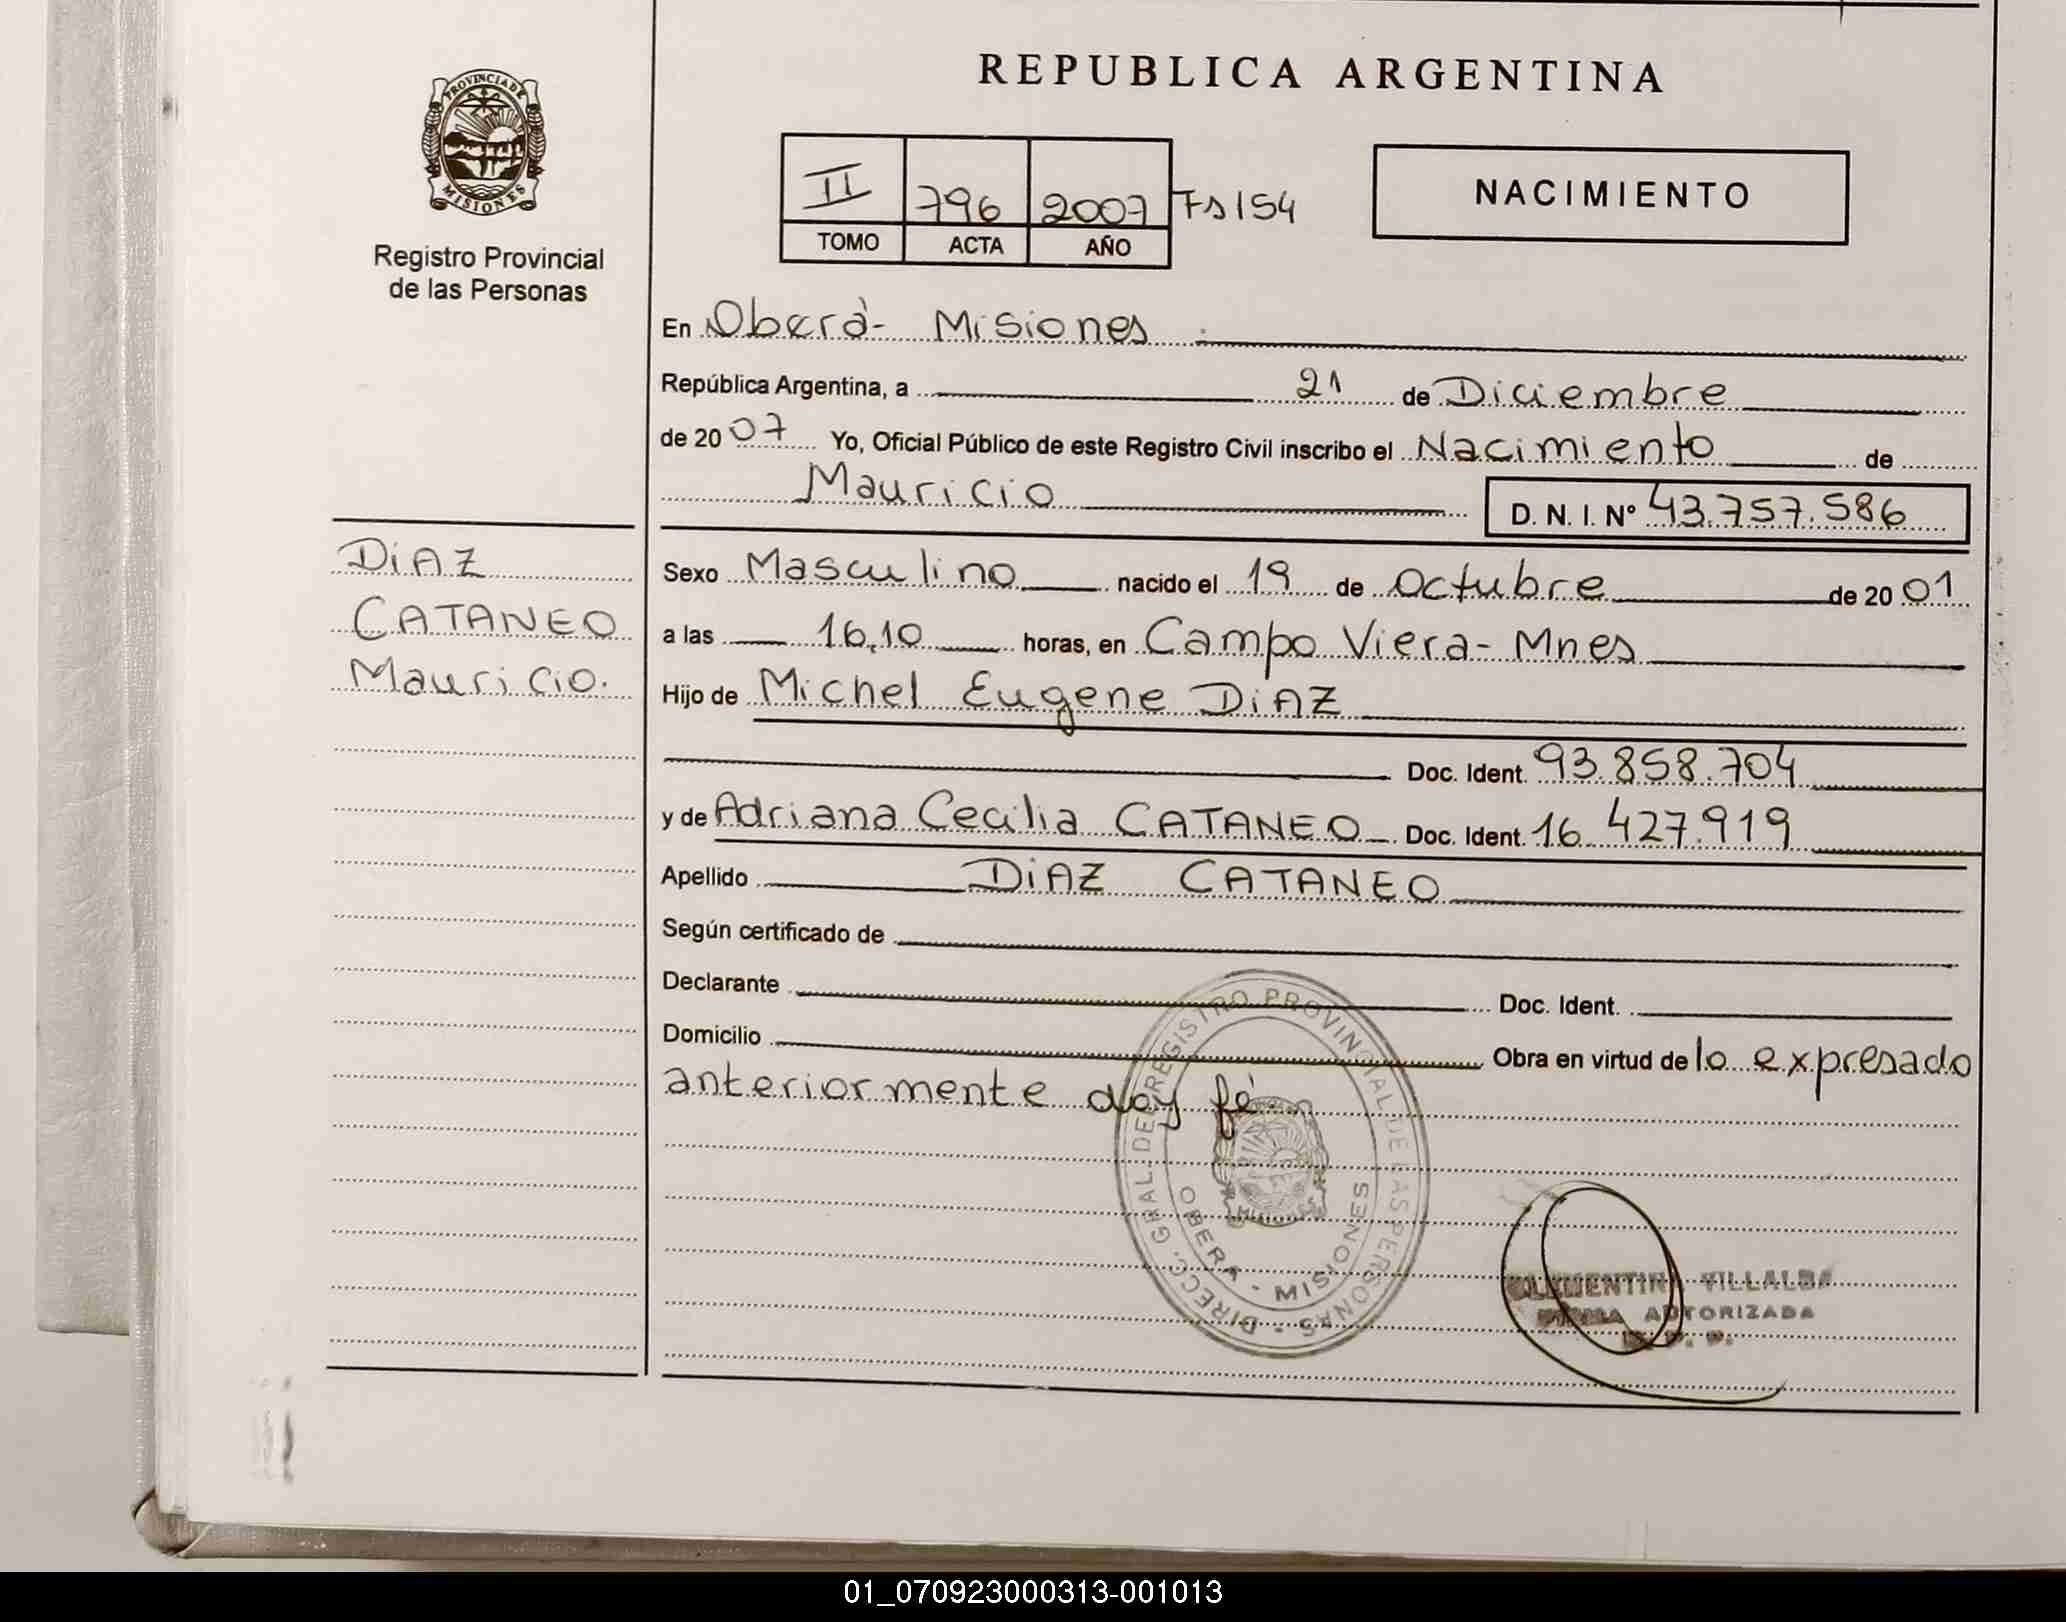 REPUBLICA ARGENTINA
PROVINCIA DE
MISIONES
Registro Provincial
de las Personas
II 796 2007 Fs 154
TOMO ACTA AÑO
NACIMIENTO
En Oberà - Misiones
República Argentina, a 21 de Diciembre
de 2007 Yo, Oficial Público de este Registro Civil inscribo el Nacimiento de
Mauricio D. N. I. Nº 43.757.586
DiAZ
CATANEO
Mauricio.
Sexo Masculino nacido el 19 de Octubre de 2001
a las 16,10 horas, en Campo Viera - Mnes
Hijo de Michel Eugene DiAZ
Doc. Ident. 93.858.704
y de Adriana Cecilia CATANEO Doc. Ident. 16.427.919
Apellido DiAZ CATANEO
Según certificado de
Declarante Doc. Ident.
Domicilio Obra en virtud de lo expresado
anteriormente doy fé
DIRECC. GRAL. DE REGISTRO PROVINCIAL DE LAS PERSONAS
OBERA - MISIONES
CLEMENTINA VILLALBA
FIRMA AUTORIZADA
01_070923000313-001013